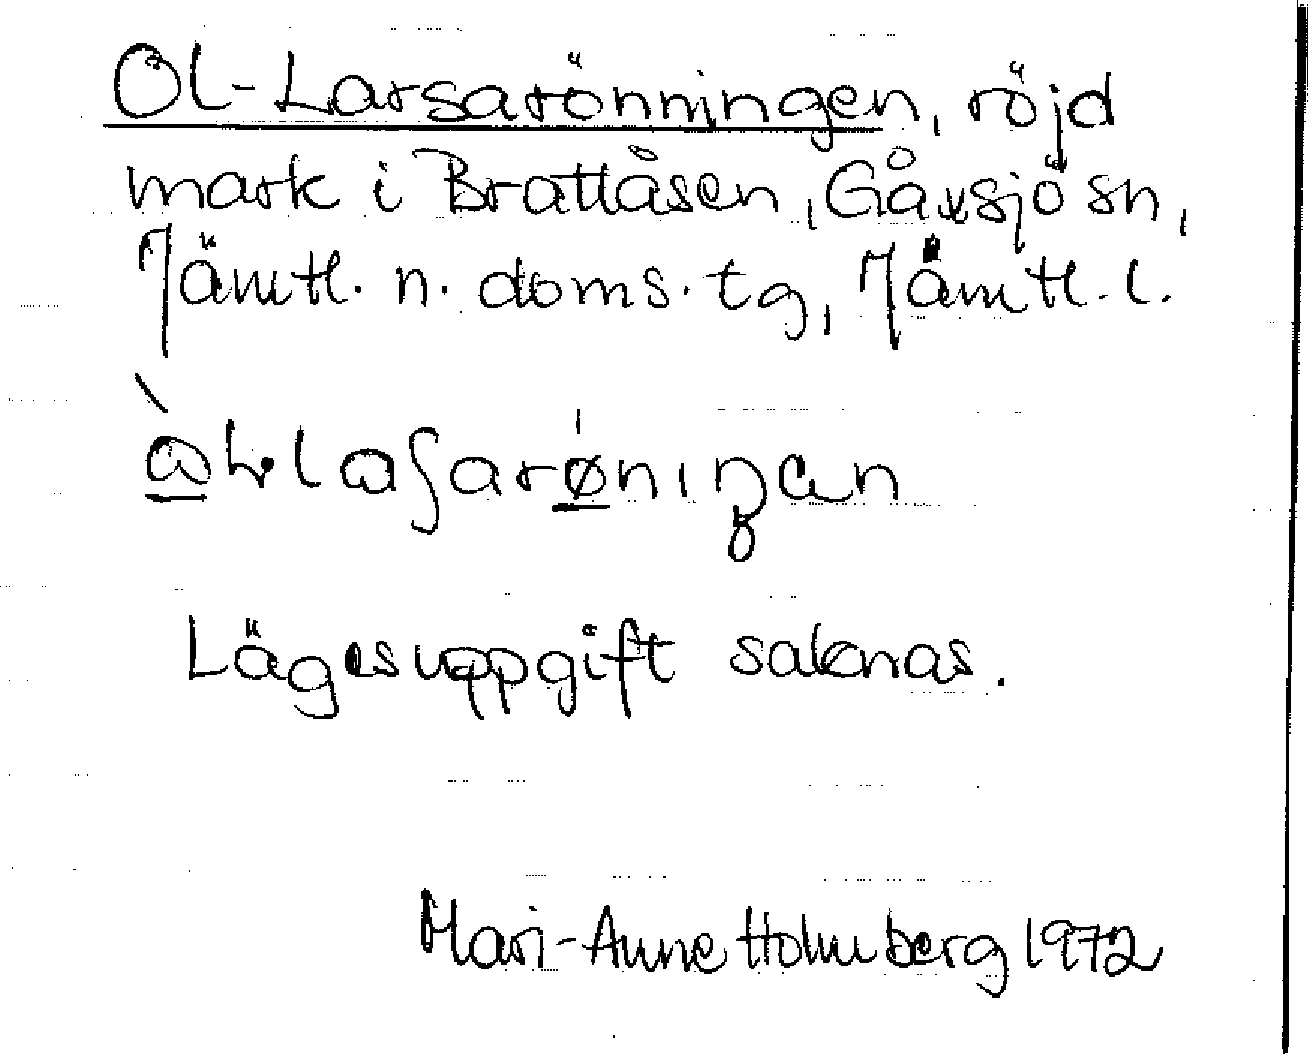 Ol-Larsarönningen, röjd
mark i Brattåsen, Gåxsjö sn,
Jämtl. n. doms. tg, Jämtl. l.
Lägesuppgift saknas.
Mari-Anne Holmberg 1972